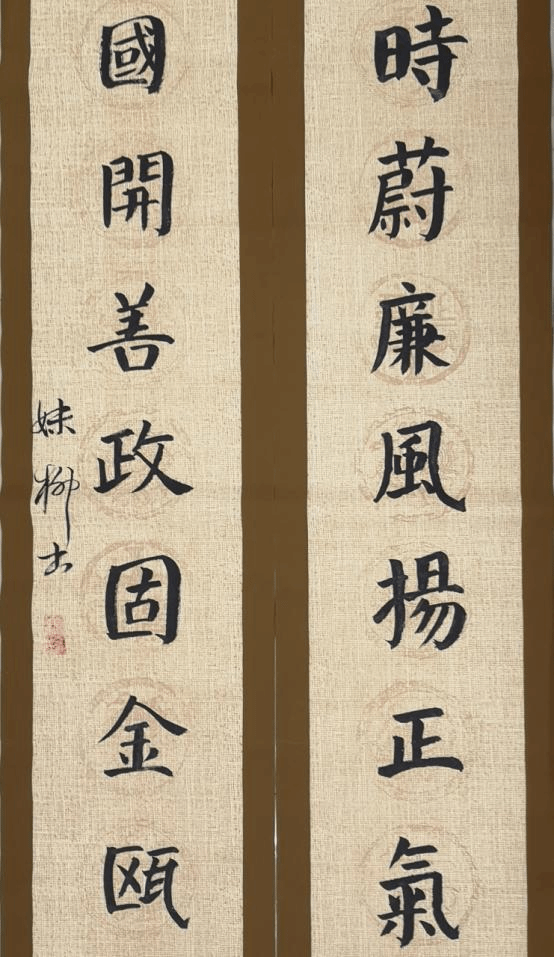 時蔚廉風揚正氣
國開善政固金甌